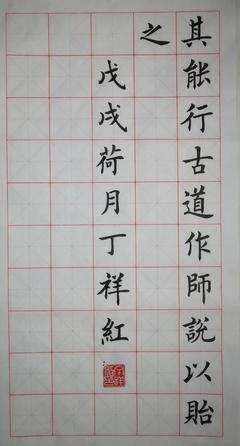 其能行古道作師說以貽
之
戊戌荷月丁祥紅